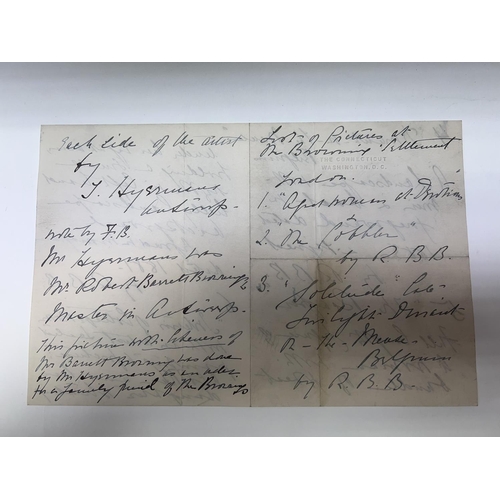 each side of the artist
by
J. Heyermans
Antwerp.
note by F.B.
Mr Heyermans was
Mr. Robert Barrett Browning's
Master in Antwerp.
This picture with likeness of
Mr Barrett Browning was done
by Mr Heyermans as an
for a family friend of the Brownings
List of Pictures at
the Browning Settlement
THE CONNECTICUT
WASHINGTON, D.C.
London.
1. "Apost woman at
2. The "Cobbler"
by R. B. B.
3. "Solitude"
Twilight Dinant
on the Meuse
Belgium
by R. B. B.